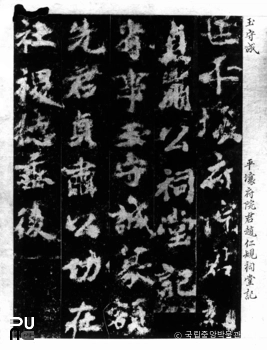 王守成
平壤府院君趙仁規祠堂記
平壤府院君趙
貞肅公祠堂記
省事王守誠篆額
先君貞肅公功在
社稷德垂後
PU
© 국립중앙박물관